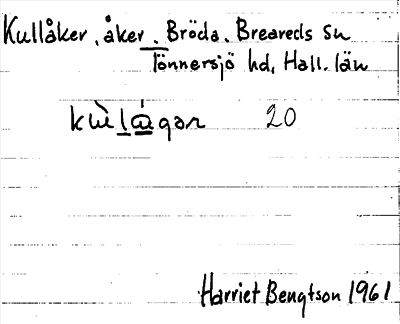 Kullåker, åker. Bröda. Breareds sn
Tönnersjö hd, Hall. län
20
Harriet Bengtson 1961